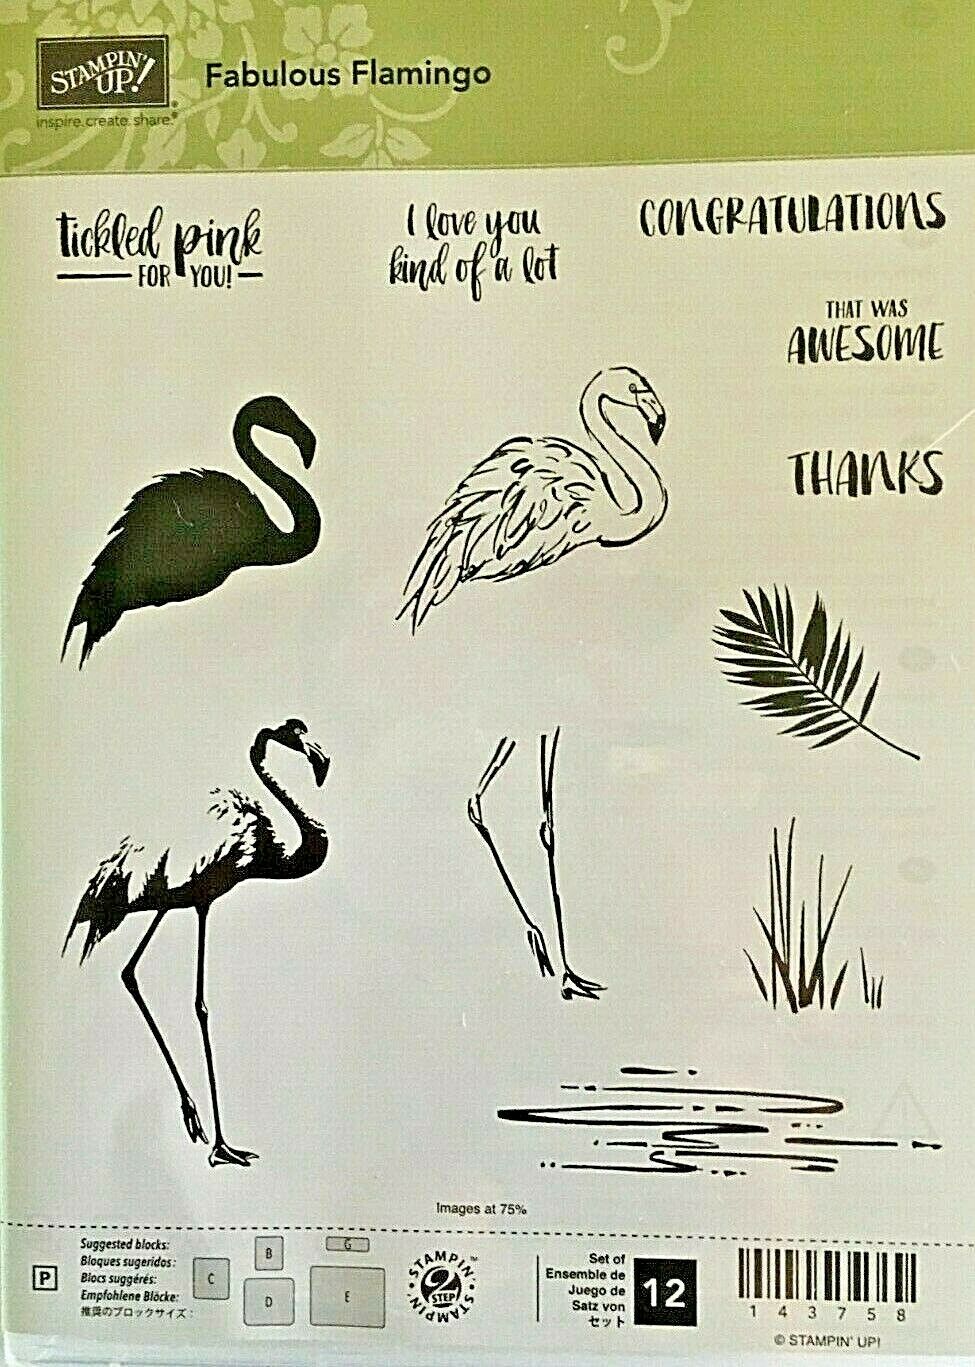 STAMPIN' UP!®
inspire.create.share.®
Fabulous Flamingo
tickled pink
FOR YOU!
I love you
kind of a lot
CONGRATULATIONS
THAT WAS
AWESOME
THANKS
Images at 75%
P
Suggested blocks:
Bloques sugeridos:
Blocs suggérés:
Empfohlene Blöcke:
推奨のブロックサイズ:
B
G
C
D
E
STAMPIN' 2 STEP STAMPIN'™
Set of
Ensemble de
Juego de
Satz von
セット
12
1 4 3 7 5 8
© STAMPIN' UP!